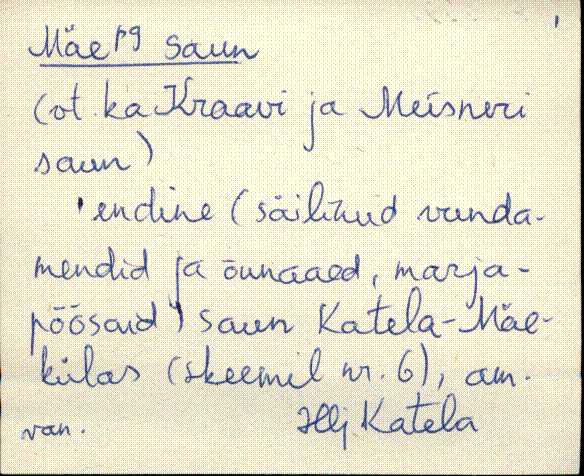 Mäe pg saun
(vt. ka Kraavi ja Meisneri
saun)
endine (säilinud vunda-
mendid ja õunaaed, marja-
põõsaid) saun Katela-Mäe-
külas (skeemil nr. 6), am.
van. Hlj Katela